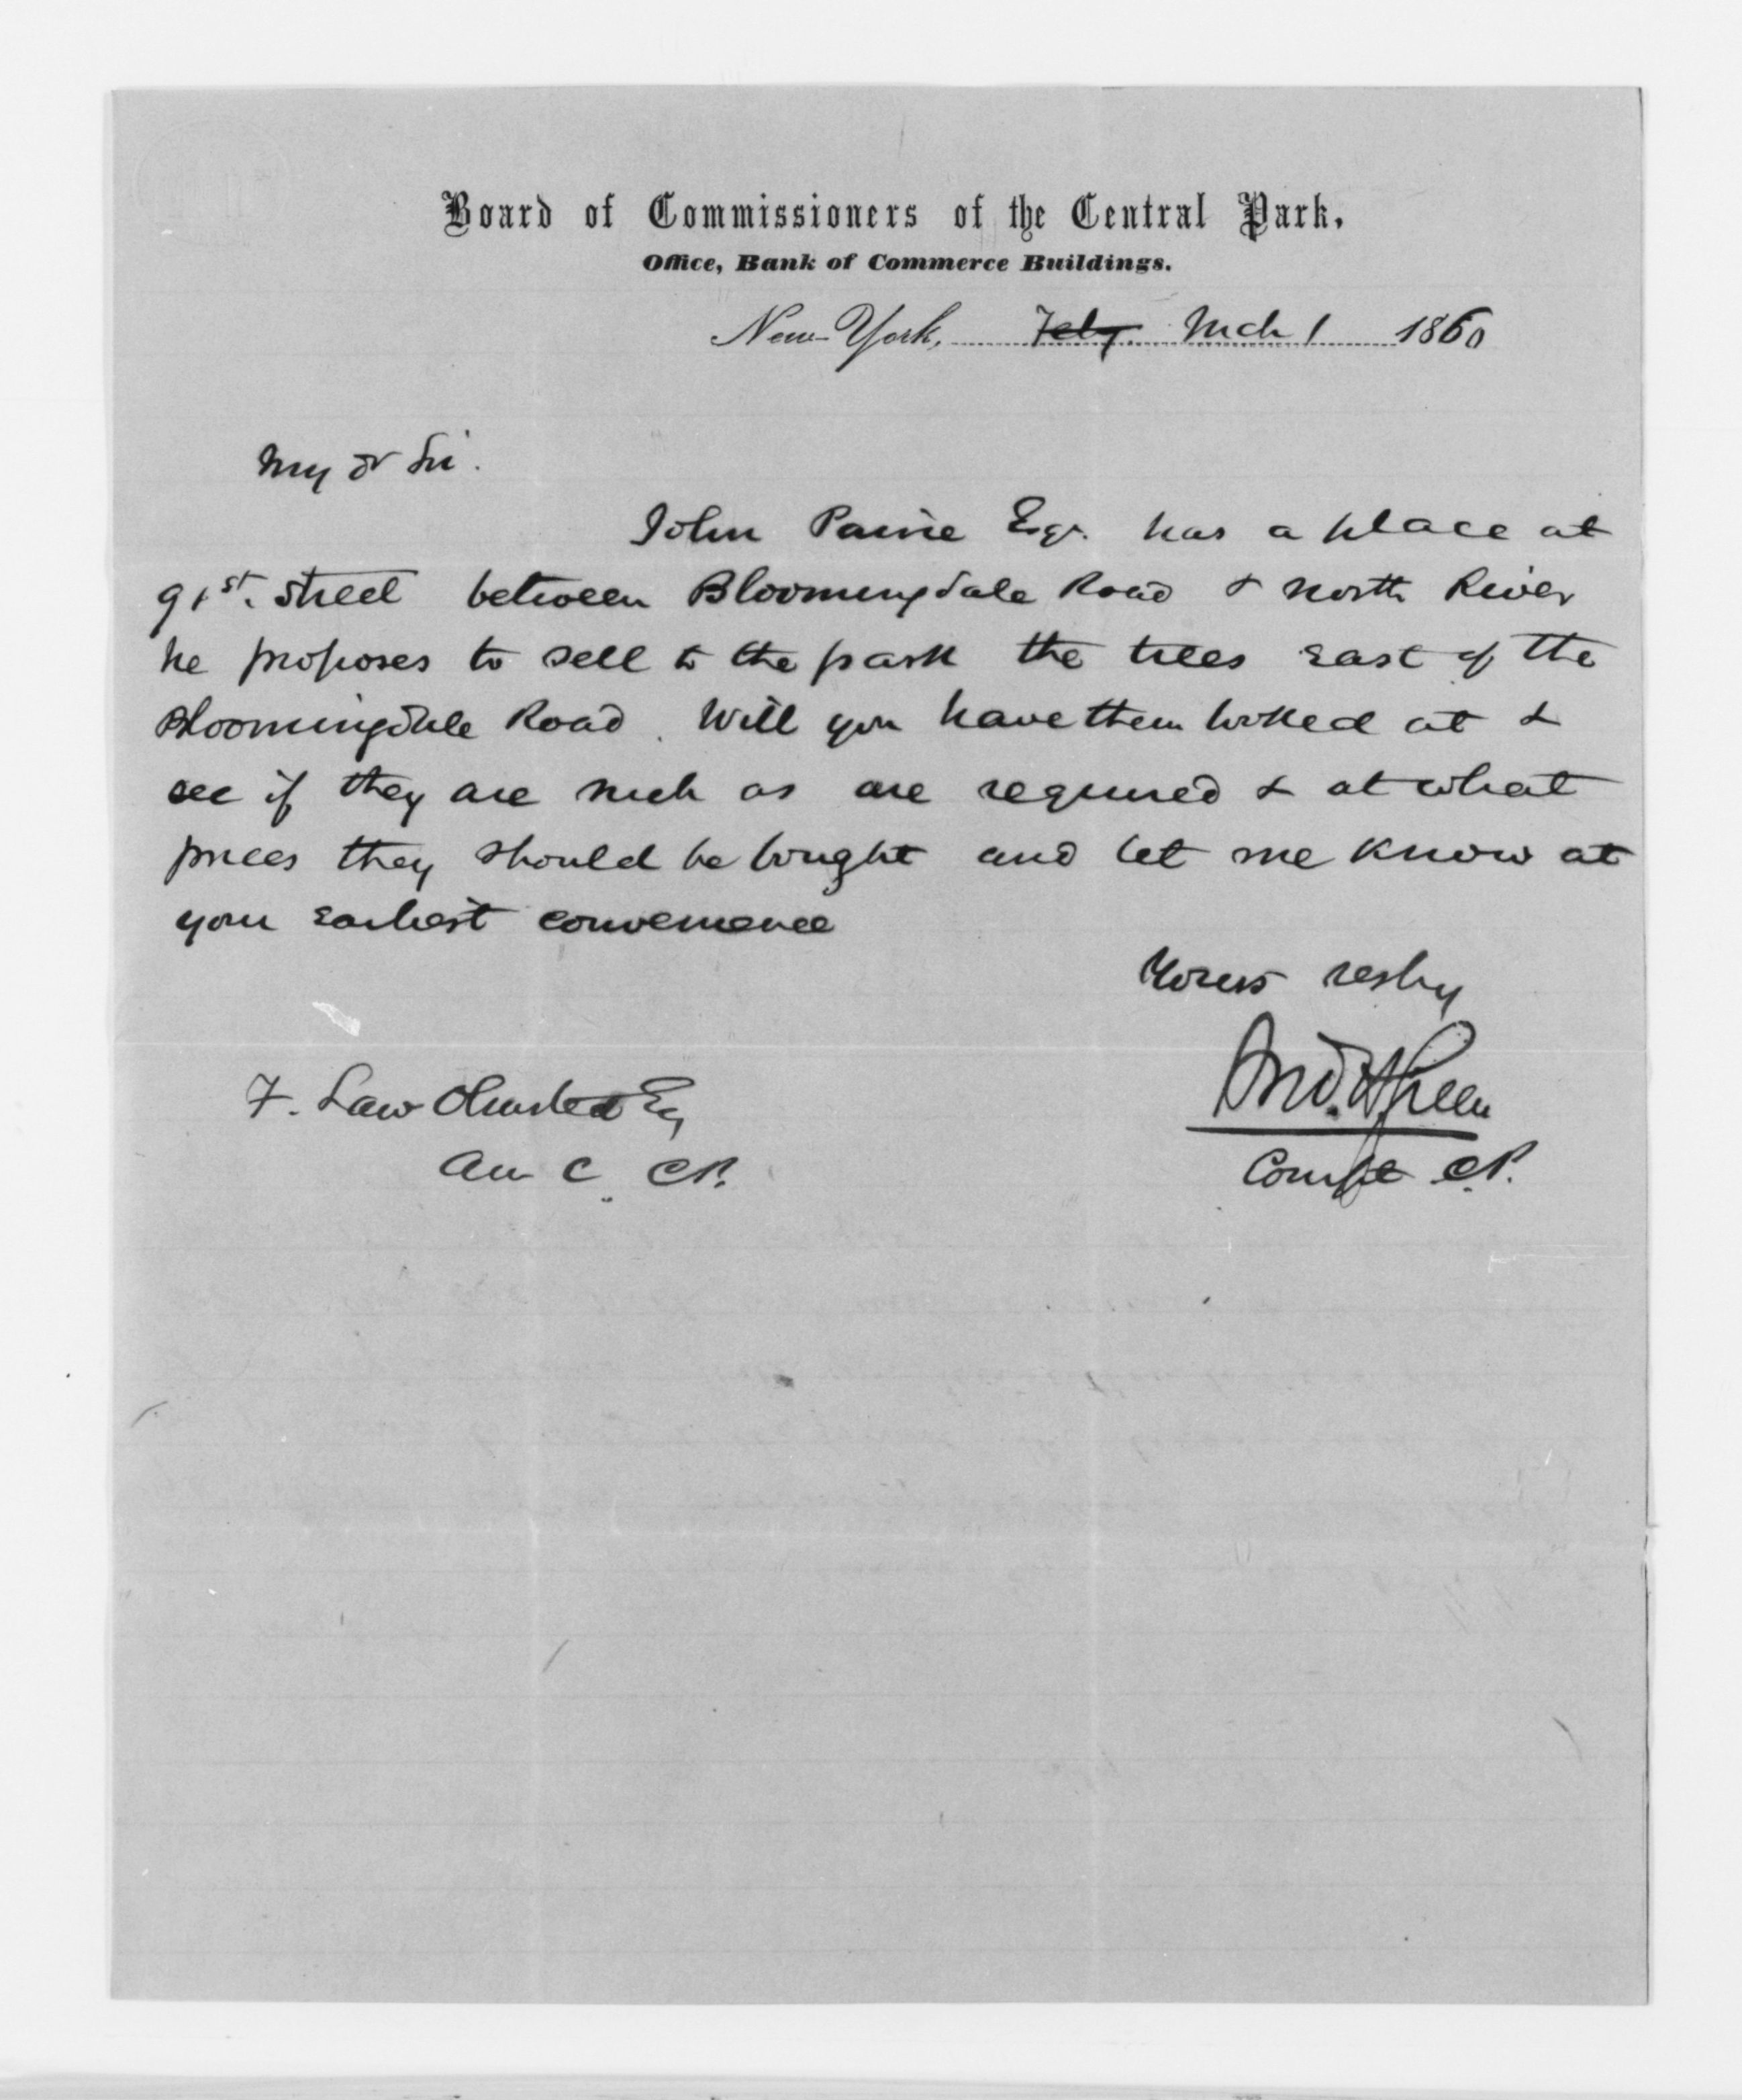 Board of Commissioners of the Central Park,
Office, Bank of Commerce Buildings.
New-York, Feby. Mch 1 1860
My Dr Sir.
John Paine Esqr. has a place at
91st. Street between Bloomingdale Road & North River
he proposes to sell to the park the trees East of the
Bloomingdale Road. Will you have them looked at &
see if they are such as are required & at what
prices they should be bought and let me know at
your Earliest convenience
Yours resply
And. H Green
Compt C.P.
F. Law Olmsted Esq
C. C.P.